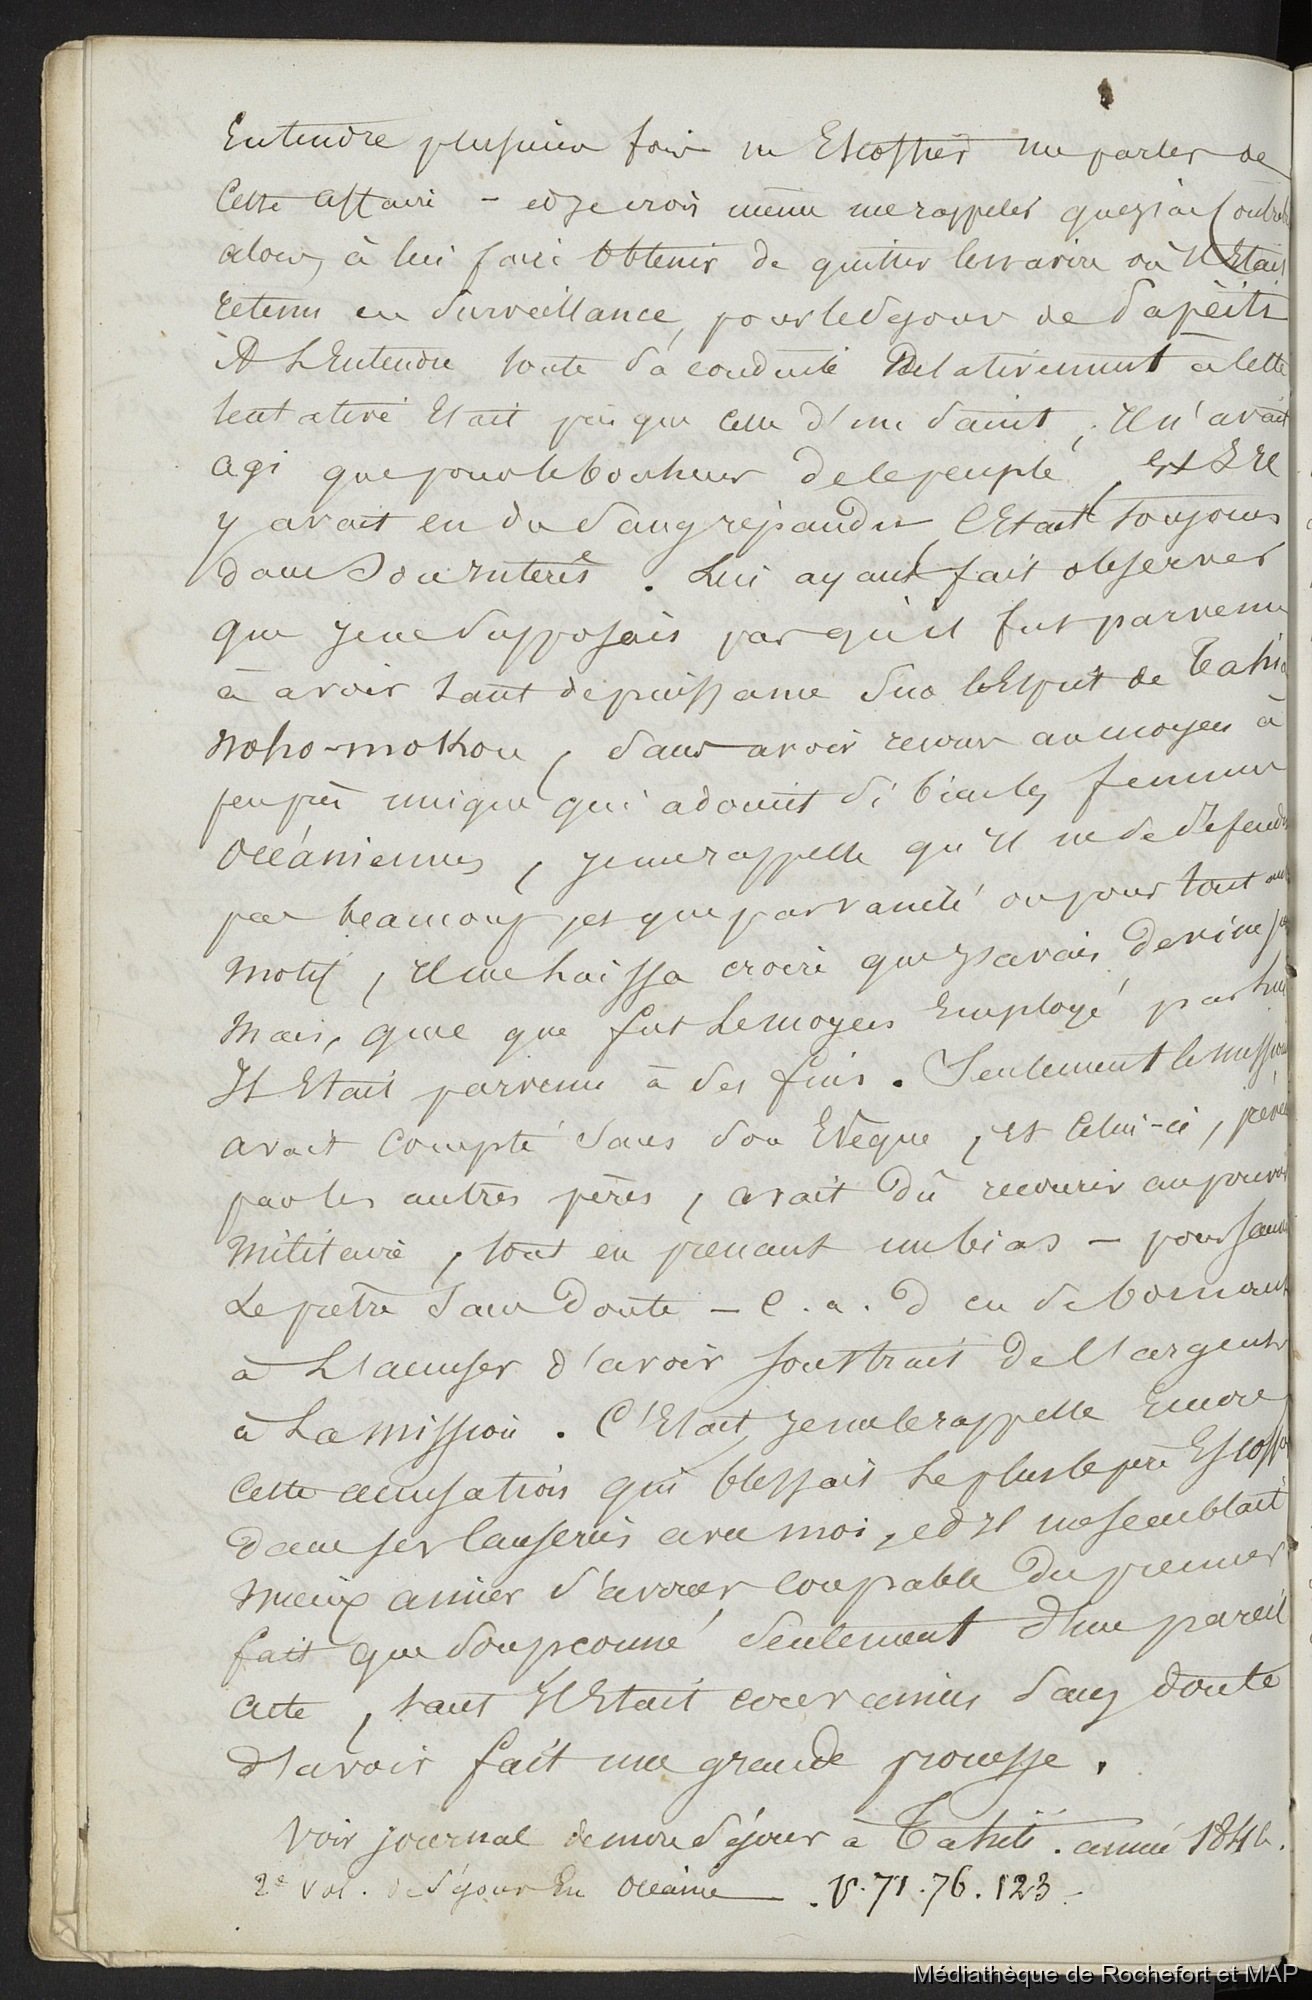 Entendre plusieur fois m Escoffier me parler de
Cette affaire - et je crois même me rappeler que j'ai contribué
alors, à lui faire obtenir de quitter le navire où il Etait
retenu en Surveillance, pour le séjour de Papéiti
A L'Entendre toute sa conduite Relativement à cette
tentative Etait pis que celle d'un saint ; Il n'avait
agi que pour le bonheur de le peuple, et S'il
y avait eu du sang répandu, C'Etait toujours
dans Son Interês. Lui ayant fait observer
que je ne supposais pas qu'il fut parvenu
à avoir tant de puissance sur l'Esprit de Tahia
Noho-mokou, sans avoir recour au moyen à
peu près unique qui adoucit si bien les femmes
Océániennes, je me rappelle qu'Il ne se défendit
pas beaucoup, et que par vanité ou pour tout autre
motif, Il me laissa croire que j'avais deviné juste
Mais, quel que fut Le moyen Employé par lui
Il Etait parvenu à ses fins. Seulement le missionnaire
avait compté sans son Evêque, et Celui-ci,
par les autres pères, avait Dû recourir au pouvoir
Militaire, tout en prenant un biais - pour sauver
Le prêtre sans Doute - C.a.D en se bornant
à L'accuser d'avoir soustrait De l'argent
à La mission. C'Etait, je me le rappelle Encore,
Cette accusation qui blessait Le plus le père Escoffier
dans ses causeries avec moi, et Il me semblait
mieux aimer s'avouer coupable Du premier
fait que soupconné seulement d'un pareil
acte, tant Il Etait convaincu sans doute
d'avoir fait une grande prouesse.
Voir journal de mon séjour à Tahiti. année 184
2e vol. de séjour En Océanie — . p. 71. 76. 123 -
Médiathèque de Rochefort et MAP